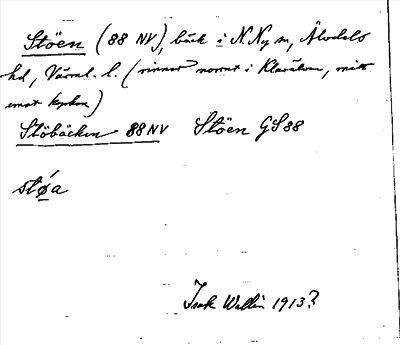 Stöen (88 NV), bäck i N. Ny sn, Älvdals
hd, Värml. l. (rinner norrut i Klarälven, mitt
emot kyrkan)
Stöbäcken 88 NV Stöen GS 88
støa
Isak Wallin 1913?